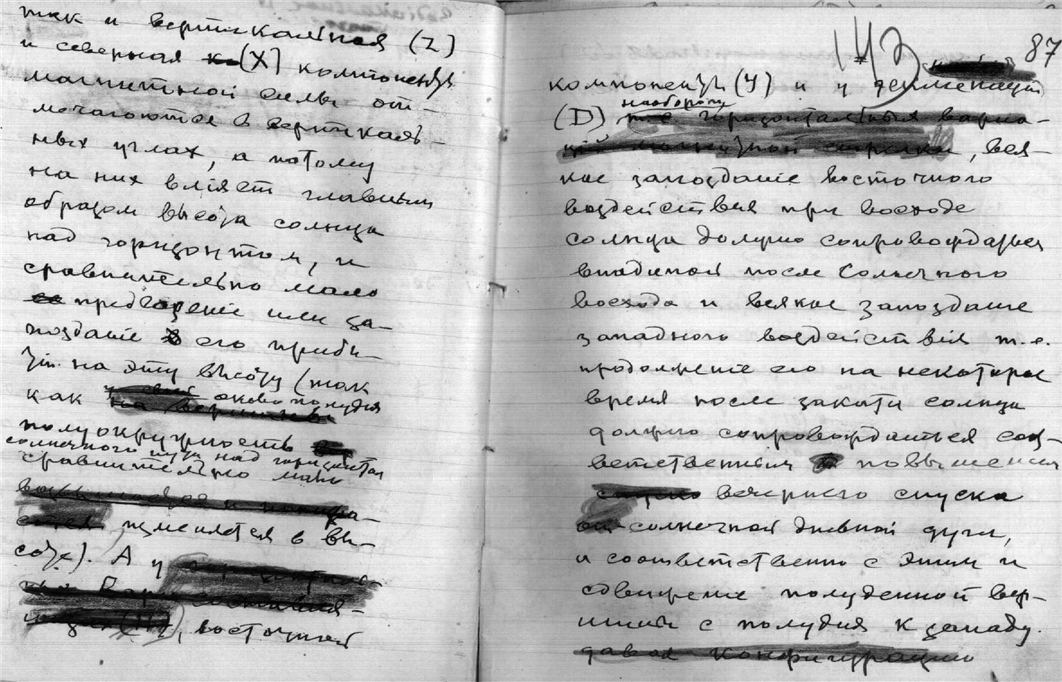 так и вертикальная (Z)
и северная (X) компоненты
магнитной силы от-
мечаются в вертикаль-
ных углах, а потому
на них влияет главным
образом высота солнца
над горизонтом, и
сравнительно мало
предварение или за-
поздание его прибы-
тия на эту высоту (так
как около полудня
полуокружность
солнечного пути над горизонтом
сравнительно мало
изменяется в вы-
соте). А у
, восточной
142 87
компоненты (Y) и у деклинации
(D), наоборот
, вся-
кое запоздание восточного
воздействия при восходе
солнца должно сопровождаться
впадиной после солнечного
восхода и всякое запоздание
западного воздействия т.е.
продолжение его на некоторое
время после заката солнца
должно сопровождаться соот-
ветственным повышением
вечернего спуска
солнечной дневной дуги,
и соответственно с этим и
сдвижение полуденной вер-
шины с полудня к западу.
давая конфигурацию